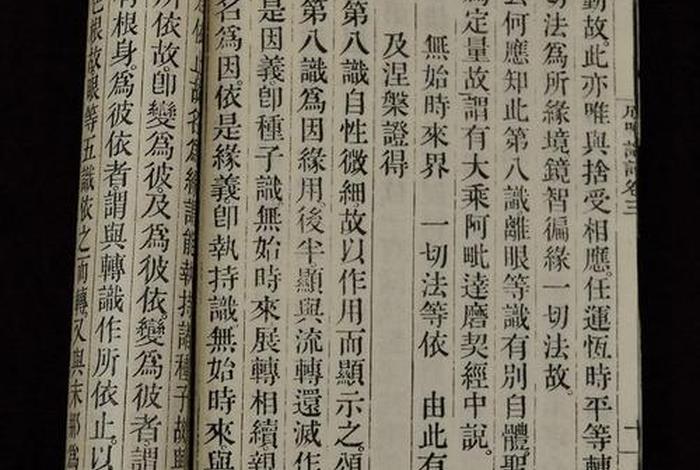 動故。此亦唯與捨受相應。任運恆時平等轉
切法為所緣境。鏡智徧緣一切法故。
云何應知此第八識離眼等識有別自體。聖
為定量故。謂有大乘阿毗達磨契經中說。
無始時來界　一切法等依　由此有
及涅槃證得
第八識自性微細。故以作用而顯示之。頌
第八識為因緣用。後半顯與流轉還滅作
是因義。即種子識。無始時來展轉相續。親
名為因。依是緣義。即執持識。無始時來。與
依止故名為緣。謂能執持諸種子故。與
所依故。即變為彼。及為彼依。變為彼者。謂
有根身。為彼依者。謂與轉識作所依止。以
色根故。眼等五識依之而轉。又與末那為
卷三